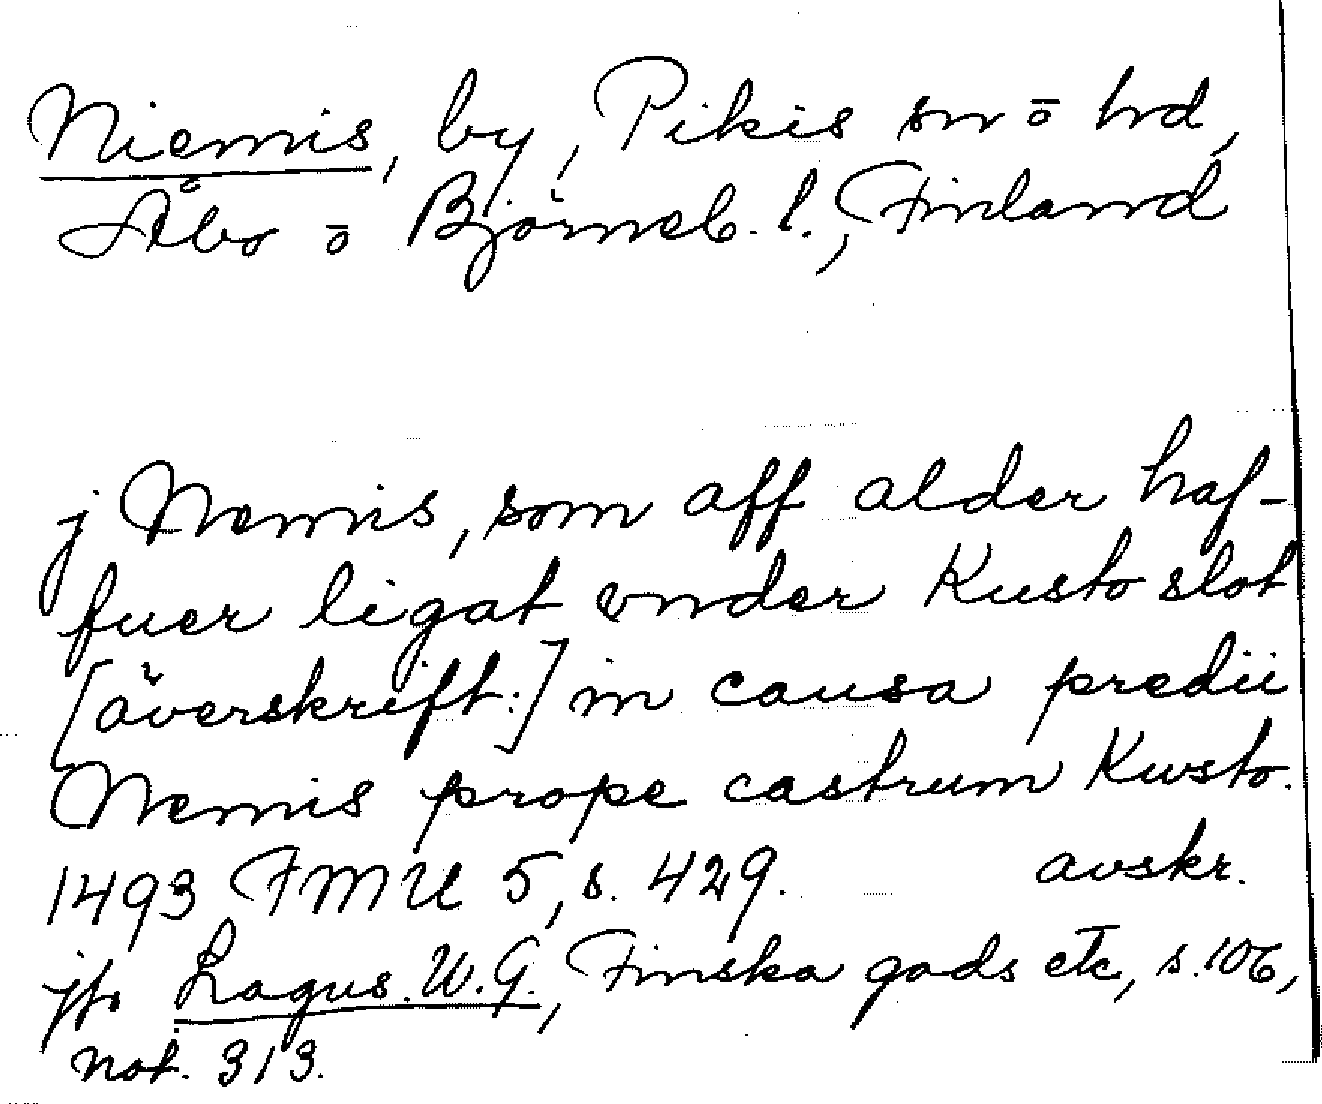 Niemis, by, Pikis sn ō hd,
Åbo ō Björneb. l., Finland
j Nemis, som aff alder haf-
fuer ligat vnder Kusto slot
[överskrift:] in causa predii
Nemis prope castrum Kusto.
1493 FMU 5, s. 429. avskr.
jfr Lagus. W.G., Finska gods etc, s. 106,
not. 313.